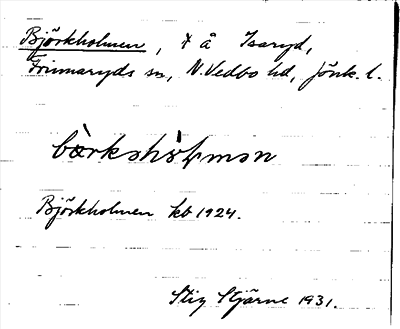 Björkholmen, t å Isaryd,
Frinnaryds sn, N. Vedbo hd, Jönk. l.
Björkholmen kb 1924.
Stig Stjärne 1931.